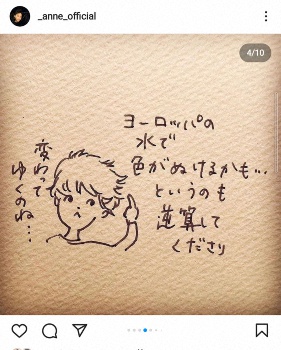 _anne_official
4/10
ヨーロッパの
水で
色がぬけるかも…
というのも
逆算して
ください
変わって
ゆくのね…